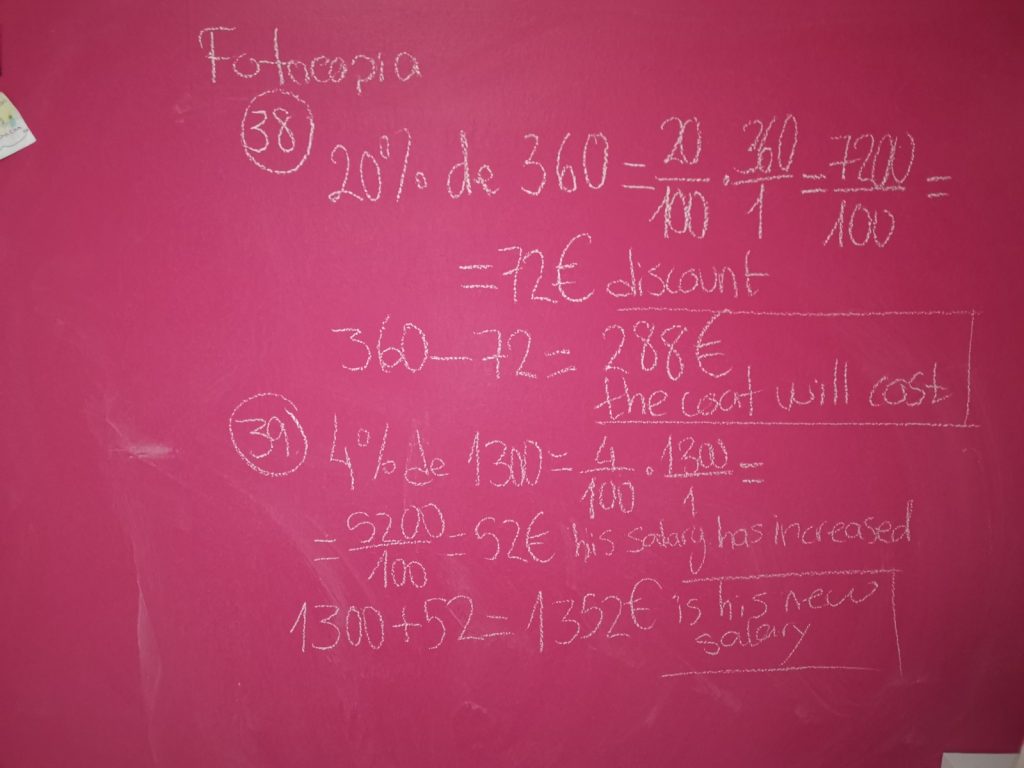 Fotocopia
38 20% de 360 = 20/100 · 360/1 = 7200/100 =
= 72€ discount
360 - 72 = 288€
the coat will cost
39 4% de 1300 = 4/100 · 1300/1 =
= 5200/100 = 52€ his salary has increased
1300 + 52 = 1352€ is his new
salary